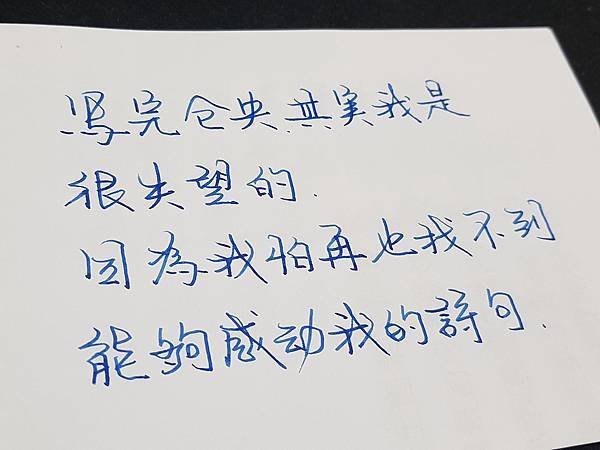 写完仓央.其実我是
很失望的.
因為我怕再也找不到
能夠感动我的詩句.